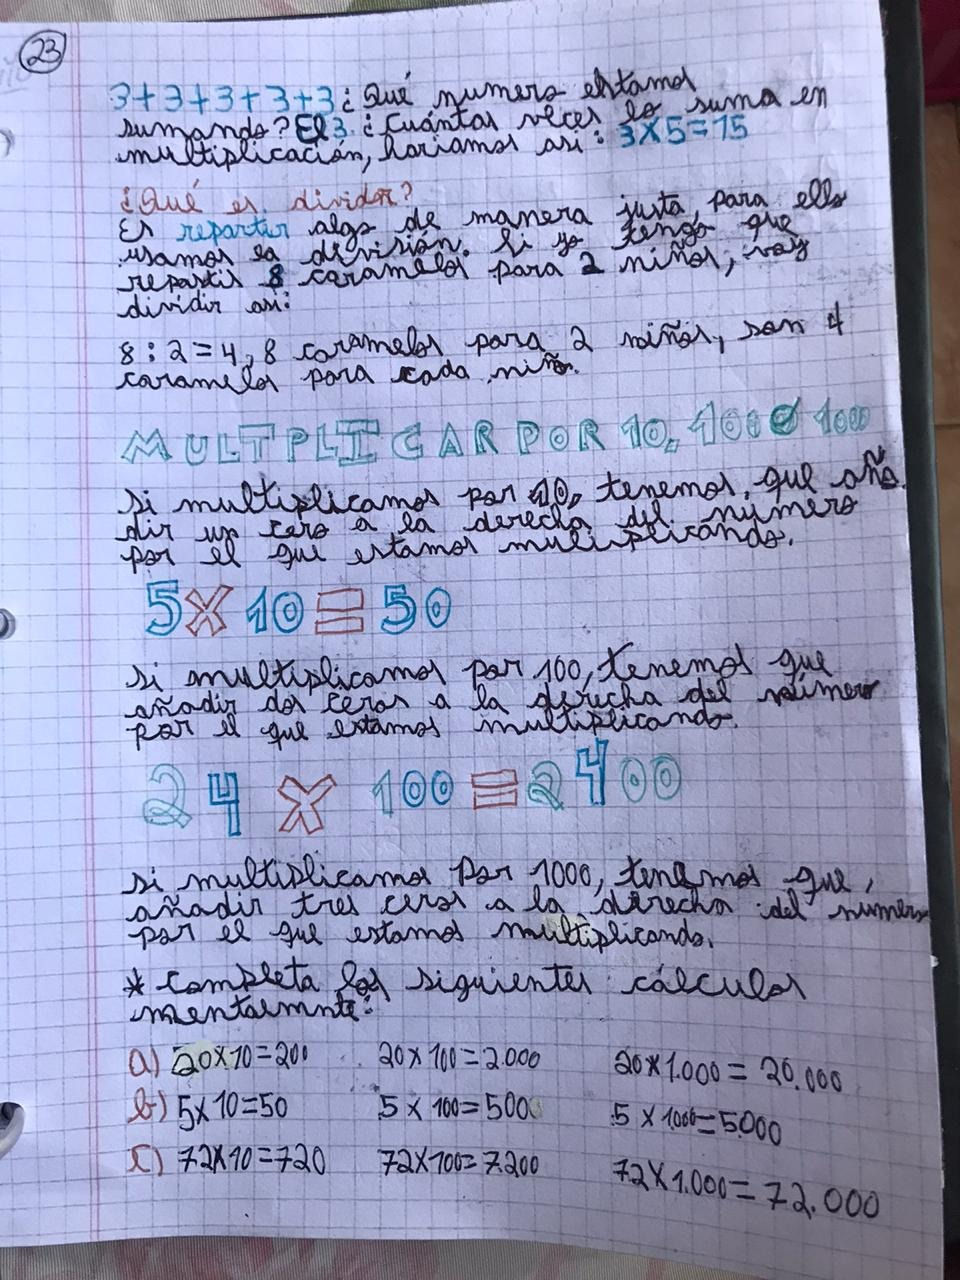 23
3+3+3+3+3 ¿Qué numero estamos
sumando? El 3. ¿Cuántas veces lo suma en
multiplicación, hariamos asi: 3x5=15
¿Qué es dividir?
Es repartir algo de manera justa, para ello
usamos la división. Si yo tengo que
repartir 8 caramelos para 2 niños, voy
dividir asi:
8:2=4, 8 caramelos para 2 niños, son 4
caramelos para cada niño.
MULTPLICAR POR 10, 100 O 1000
Si multiplicamos por 10, tenemos, que aña
dir un cero a la derecha del numero
por el que estamos multiplicando.
5x10=50
Si multiplicamos por 100, tenemos que
añadir dos ceros a la derecha del número
por el que estamos multiplicando.
24 x 100=2400
Si multiplicamos por 1000, tenemos que,
añadir tres ceros a la derecha del numero
por el que estamos multiplicando.
* Completa los siguientes cálculos
mentalmnte:
a) 20x10=200 20x100=2.000 20x1.000=20.000
b) 5x10=50 5x100=500 5x1000=5000
c) 72x10=720 72x100=7.200 72x1.000=72.000